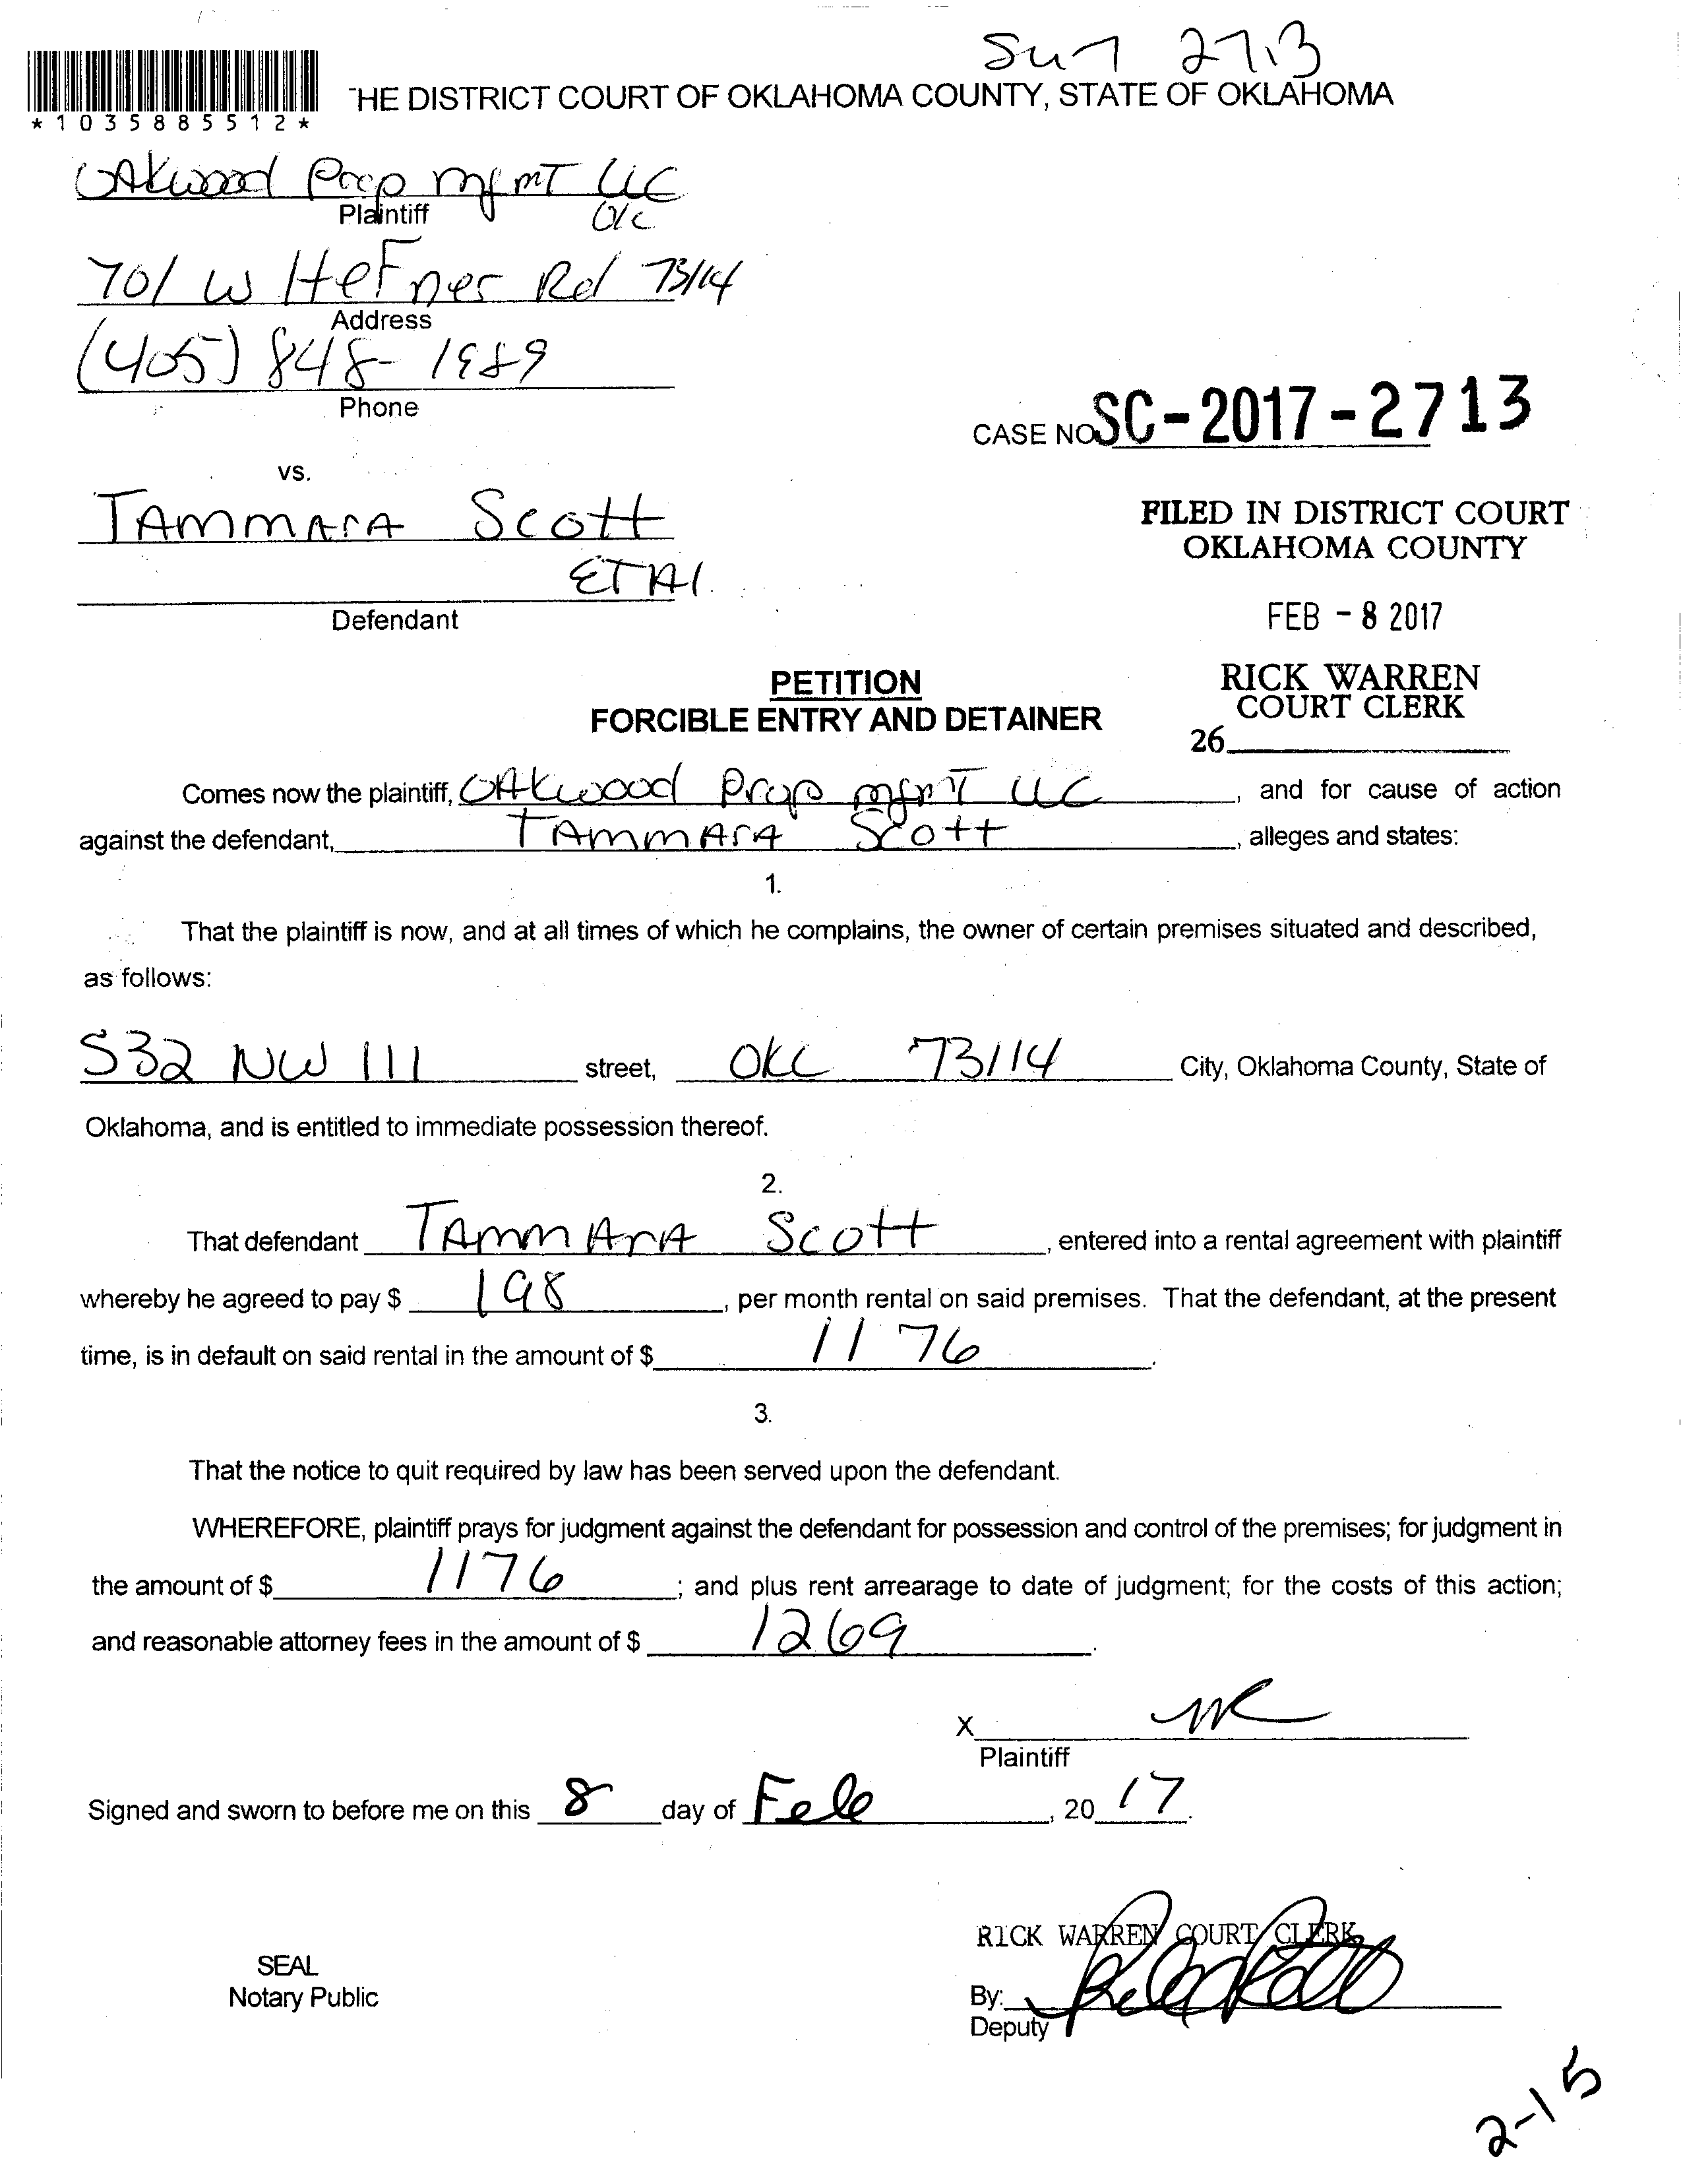 Sun 2713
*1035885512*
THE DISTRICT COURT OF OKLAHOMA COUNTY, STATE OF OKLAHOMA
OAkwood Prop mgmT LLC
Plaintiff
OKC
701 W HeFner Rd 73114
Address
(405) 848-1989
Phone
CASE NO SC-2017-2713
vs.
TAmmArA Scott
ETAl.
Defendant
FILED IN DISTRICT COURT
OKLAHOMA COUNTY
FEB - 8 2017
RICK WARREN
COURT CLERK
26
PETITION
FORCIBLE ENTRY AND DETAINER
Comes now the plaintiff, OAkwood Prop mgmT LLC, and for cause of action
against the defendant, TAmmArA Scott, alleges and states:
1.
That the plaintiff is now, and at all times of which he complains, the owner of certain premises situated and described,
as follows:
532 NW 111 street, OKC 73114 City, Oklahoma County, State of
Oklahoma, and is entitled to immediate possession thereof.
2.
That defendant TAmmArA Scott, entered into a rental agreement with plaintiff
whereby he agreed to pay $ 198, per month rental on said premises. That the defendant, at the present
time, is in default on said rental in the amount of $ 1176.
3.
That the notice to quit required by law has been served upon the defendant.
WHEREFORE, plaintiff prays for judgment against the defendant for possession and control of the premises; for judgment in
the amount of $ 1176; and plus rent arrearage to date of judgment; for the costs of this action;
and reasonable attorney fees in the amount of $ 1269.
X
Plaintiff
Signed and sworn to before me on this 8 day of Feb, 20 17.
RICK WARREN COURT CLERK
SEAL
Notary Public
By:
Deputy
2-15